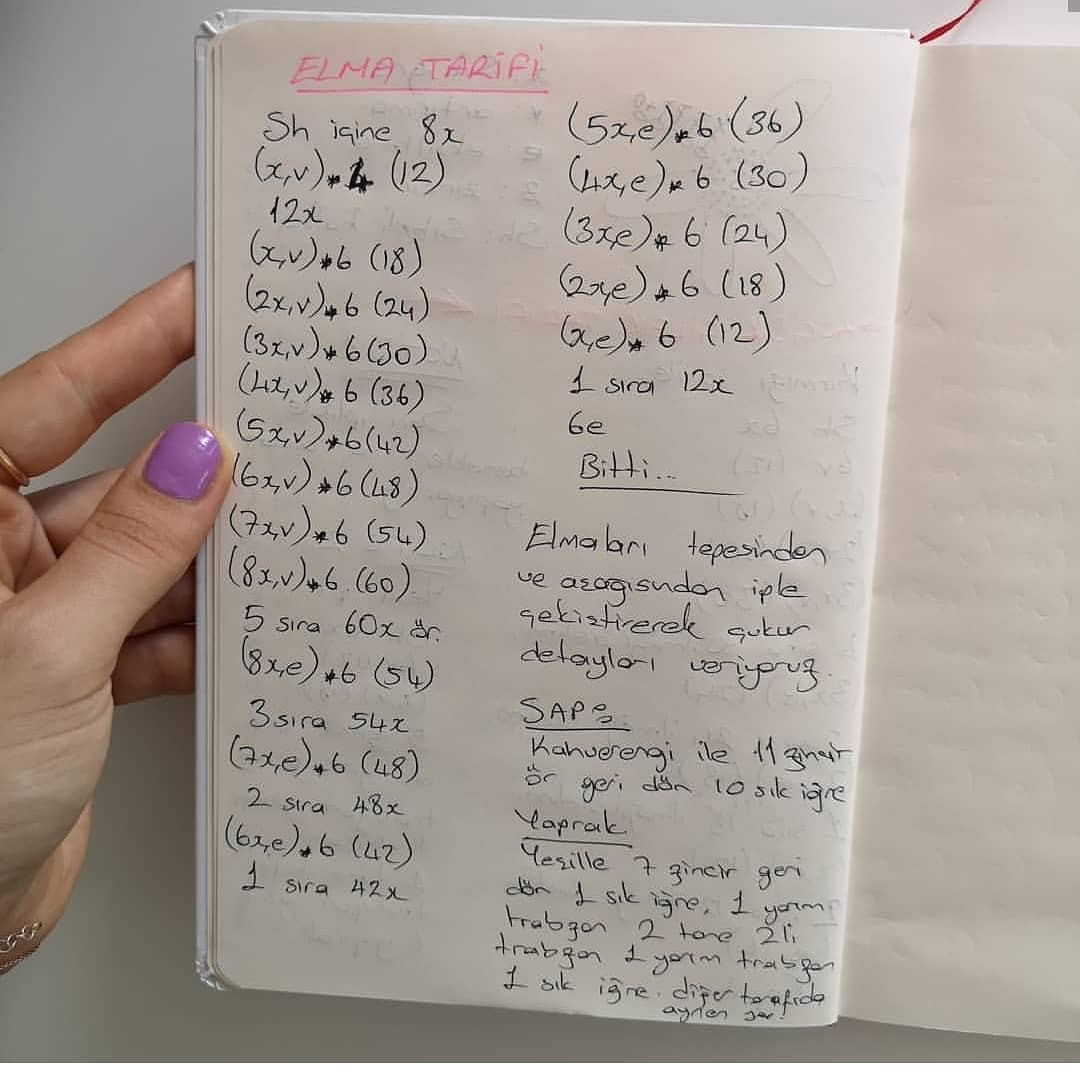 ELMA TARİFİ
Sh içine 8x
(x,v)*4 (12)
12x
(x,v)*6 (18)
(2x,v)*6 (24)
(3x,v)*6 (30)
(4x,v)*6 (36)
(5x,v)*6 (42)
(6x,v)*6 (48)
(7x,v)*6 (54)
(8x,v)*6 (60)
5 sıra 60x ör.
(8x,e)*6 (54)
3 sıra 54x
(7x,e)*6 (48)
2 sıra 48x
(6x,e)*6 (42)
1 sıra 42x
(5x,e)*6 (36)
(4x,e)*6 (30)
(3x,e)*6 (24)
(2x,e)*6 (18)
(x,e)*6 (12)
1 sıra 12x
6e
Bitti...
Elmaları tepesinden
ve aşağısından iple
çekiştirerek çukur
detayları veriyoruz.
SAPı
Kahverengi ile 11 zincir
ör geri dön 10 sık iğne
Yaprak
Yeşille 7 zincir geri
dön 1 sık iğne, 1 yarım
trabzan 2 tane 2li
trabzan 1 yarım trabzan
1 sık iğne. diğer tarafıda
aynen